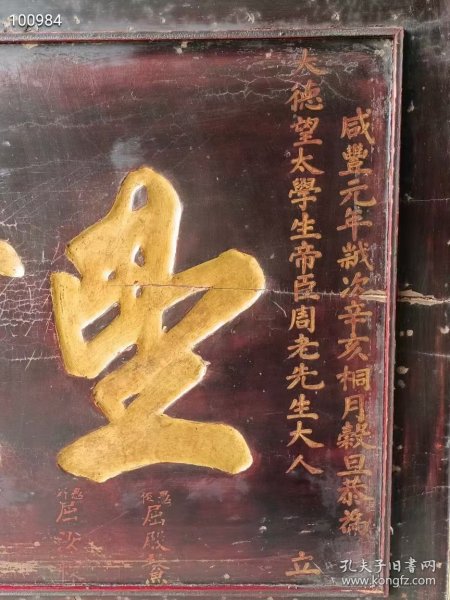 咸豐元年歲次辛亥桐月穀旦恭為
大德望太學生帝臣周老先生大人
立
里
屈殿
屈
100984
孔夫子旧书网
www.kongfz.com